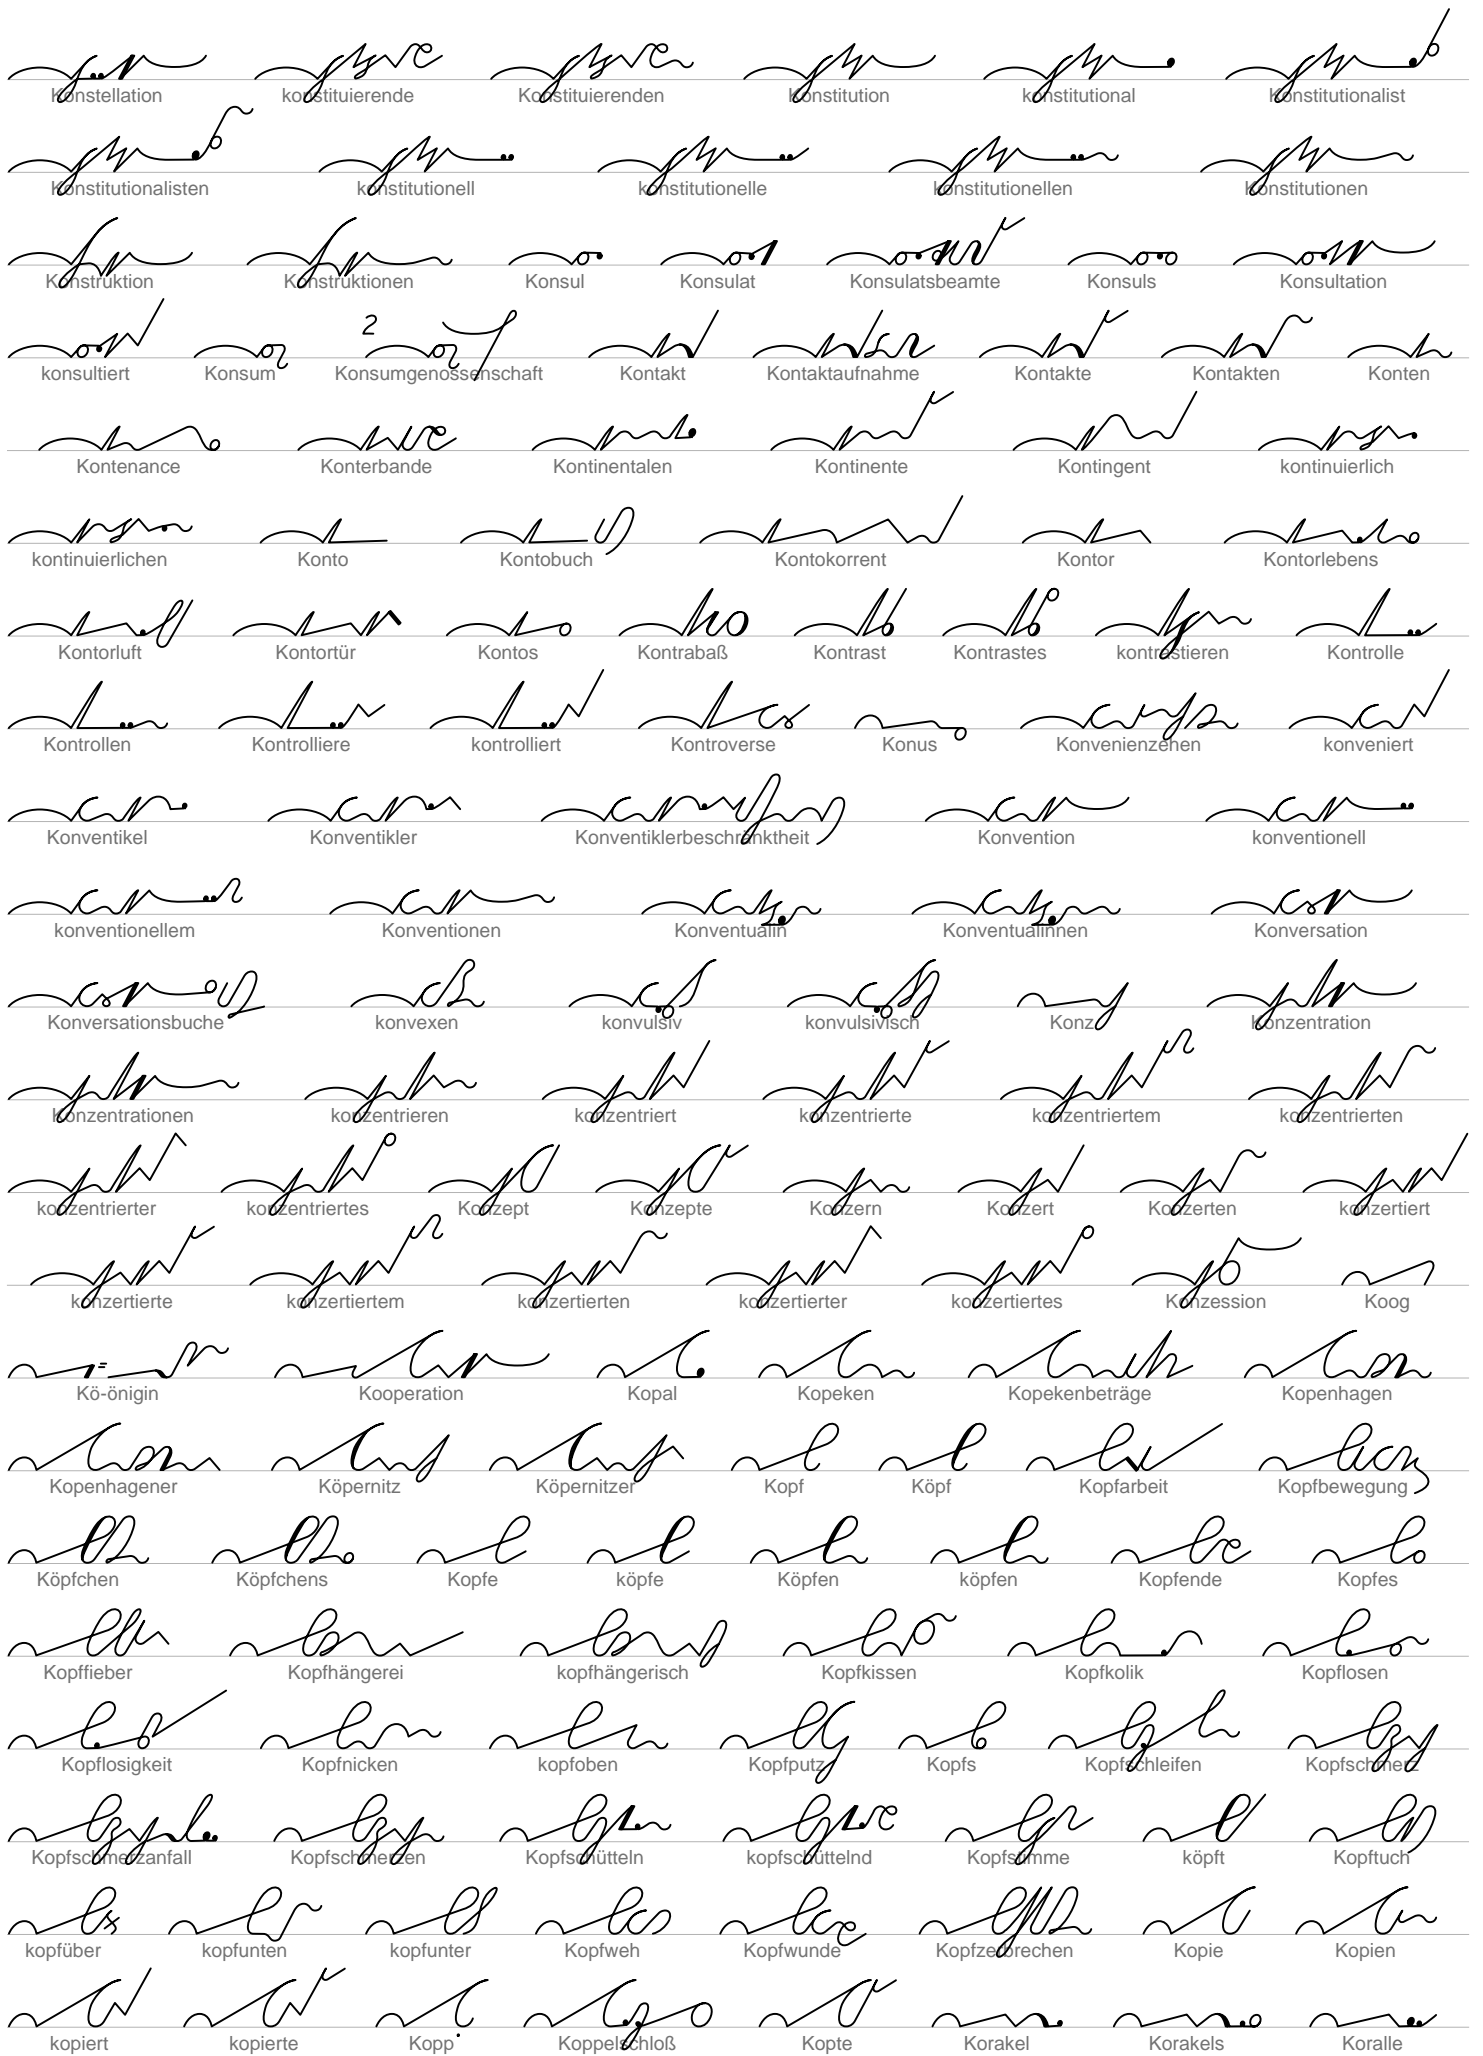 Konstellation konstituierende Konstituierenden Konstitution konstitutional Konstitutionalist
Konstitutionalisten konstitutionell konstitutionelle konstitutionellen Konstitutionen
Konstruktion Konstruktionen Konsul Konsulat Konsulatsbeamte Konsuls Konsultation
konsultiert Konsum Konsumgenossenschaft Kontakt Kontaktaufnahme Kontakte Kontakten Konten
Kontenance Konterbande Kontinentalen Kontinente Kontingent kontinuierlich
kontinuierlichen Konto Kontobuch Kontokorrent Kontor Kontorlebens
Kontorluft Kontortür Kontos Kontrabaß Kontrast Kontrastes kontrastieren Kontrolle
Kontrollen Kontrolliere kontrolliert Kontroverse Konus Konvenienzehen konveniert
Konventikel Konventikler Konventiklerbeschränktheit Konvention konventionell
konventionellem Konventionen Konventualin Konventualinnen Konversation
Konversationsbuche konvexen konvulsiv konvulsivisch Konz Konzentration
Konzentrationen konzentrieren konzentriert konzentrierte konzentriertem konzentrierten
konzentrierter konzentriertes Konzept Konzepte Konzern Konzert Konzerten konzertiert
konzertierte konzertiertem konzertierten konzertierter konzertiertes Konzession Koog
Kö-önigin Kooperation Kopal Kopeken Kopekenbeträge Kopenhagen
Kopenhagener Köpernitz Köpernitzer Kopf Köpf Kopfarbeit Kopfbewegung
Köpfchen Köpfchens Kopfe köpfe Köpfen köpfen Kopfende Kopfes
Kopffieber Kopfhängerei kopfhängerisch Kopfkissen Kopfkolik Kopflosen
Kopflosigkeit Kopfnicken kopfoben Kopfputz Kopfs Kopfschleifen Kopfschmerz
Kopfschmerzanfall Kopfschmerzen Kopfschütteln kopfschüttelnd Kopfstimme köpft Kopftuch
kopfüber kopfunten kopfunter Kopfweh Kopfwunde Kopfzerbrechen Kopie Kopien
kopiert kopierte Kopp Koppelschloß Kopte Korakel Korakels Koralle